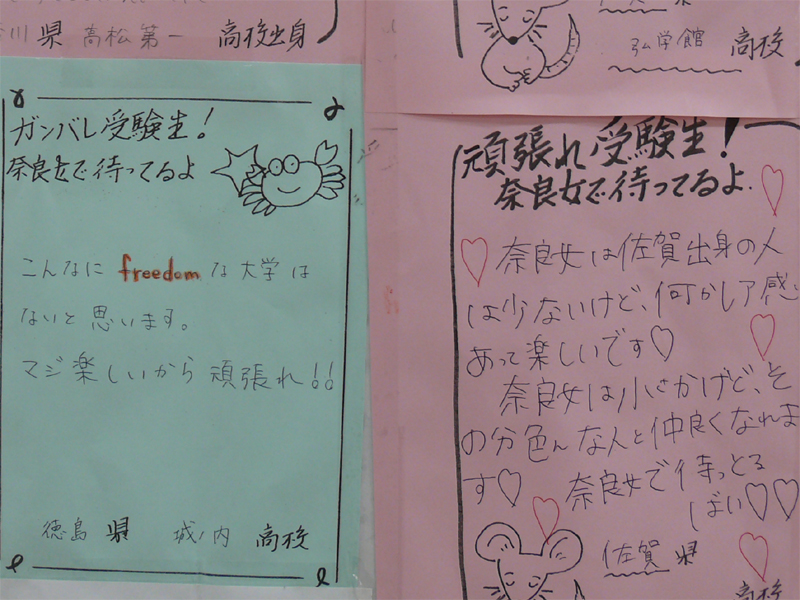 川県 高松第一 高校出身
弘学館 高校
ガンバレ受験生!
奈良女で待ってるよ
こんなに freedom な大学は
ないと思います。
マジ楽しいから頑張れ!!
徳島県 城ノ内 高校
頑張れ受験生!
奈良女で待ってるよ.
奈良女は佐賀出身の人
は少ないけど、何かレア感
あって楽しいです♡
奈良女は小さかけど、そ
の分色んな人と仲良くなれま
す♡ 奈良女で待っとる
ばい♡♡
佐賀県
高校